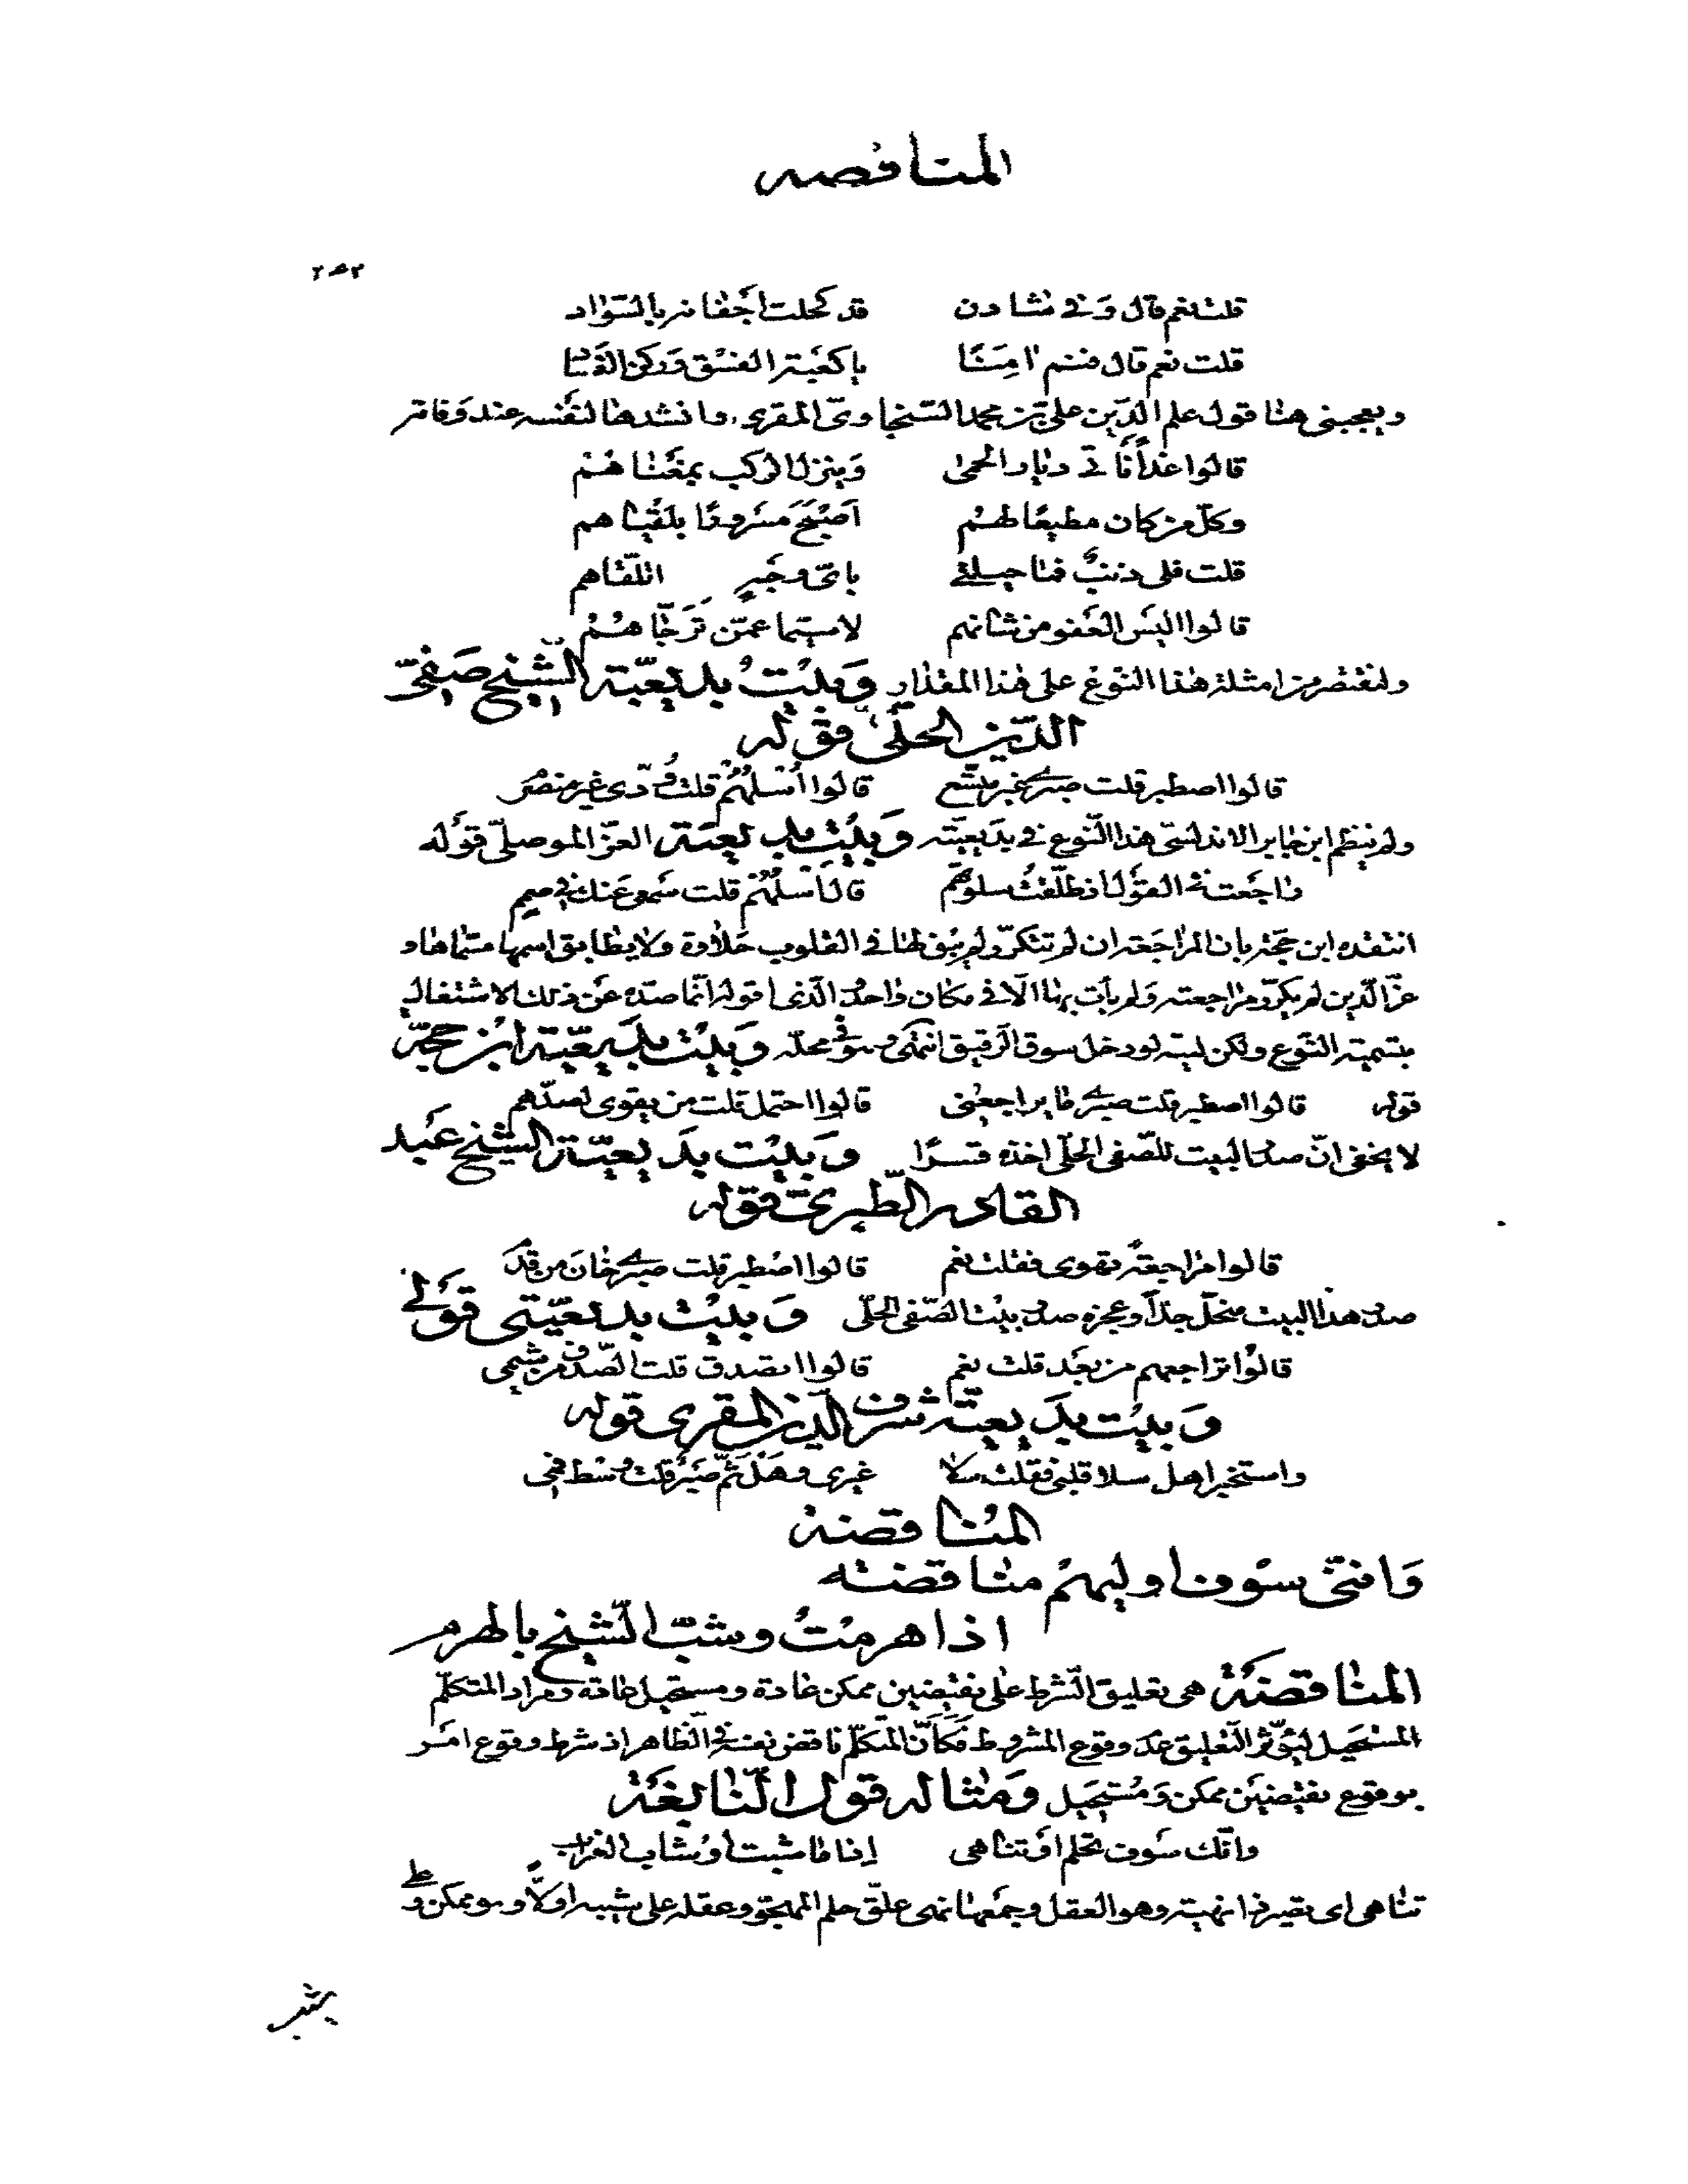 المناقضه
قلت نعم قال وفي شادن قد كحلت أجفانه بالسواد
قلت نعم قال فنم آمنا يا كعبة الفسق وركن الفساد
ويعجبني هنا قول علم الدين علي بن محمد السنحاوي المقري وانشدها لنفسه عند وفاته
قالوا غدا نأتي ديار الحمى وينزل الركب بمغناهم
وكل من كان مطيعا لهم أصبح مسرورا بلقياهم
قلت فلي ذنب فما حيلتي بأي وجه اتلقاهم
قالوا اليس العفو من شانهم لا سيما عمن ترجاهم
ولنقتصر من امثلة هذا النوع على هذا المقدار وبيت بديعية الشيخ صفي
الدين الحلي قوله
قالوا اصطبر قلت صبري غير متسع قالوا اسلهم قلت ودي غير منصرم
ولم ينظم ابن جابر الاندلسي هذا النوع في بديعيته وبيت بديعية العز الموصلي قوله
راجعت في القول اذ طلقت سلوتهم قالوا اسلهم قلت سمعي عنك في صمم
انتقده ابن حجة بان المراجعة ان لم تتكرر لم يبق لها في القلوب حلاوة ولا يطابق اسمها مسماها و
عز الدين لم يكرر مراجعته ولم يأت بها الا في مكان واحد الذي اقوله انما صده عن ذلك الاشتغال
بتسمية النوع ولكن ليته لو دخل سوق الرقيق انتهى وهو في محله وبيت بديعية ابن حجة
قوله قالوا اصطبر قلت صبري ما يراجعني قالوا احتمل قلت من يقوى لصدهم
لا يخفى ان صدر البيت للصفي الحلي اخذه قسرا وبيت بديعية الشيخ عبد
القادر الطبري قوله
قالوا مراجعة تهوى فقلت نعم قالوا اصطبر قلت صبري خان من قدم
صدر هذا البيت منحل جدا وعجزه صدر بيت الصفي الحلي وبيت بديعيتي قولي
قالوا تراجعهم من بعد قلت نعم قالوا اتصدق قلت الصدق من شيمي
وبيت بديعية شرف الدين المقري قوله
واستخبر اهل سلا قلبي فقلت سلا غيري وهل ثم صبر قلت وسط فمي
المناقضة
وانني سوف اوليهم مناقضته
اذا هرمت وشب الشيخ بالهرم
المناقضة هي تعليق الشرط على نقيضين ممكن عادة ومستحيل عادة ومراد المتكلم
المستحيل ليؤثر التعليق عدم وقوع المشروط فكأن المتكلم ناقض نفسه في الظاهر اذ شرط وقوع امر
بوقوع نقيضين ممكن ومستحيل ومثاله قول النابغة
وانك سوف تحلم او تناهى إذا ما شبت او شاب الغراب
تناهى اي تصير ذا نهية وهو العقل وجمعها نهى علق حلم المهجو وعقله على شيبه اولا وهو ممكن وعلى